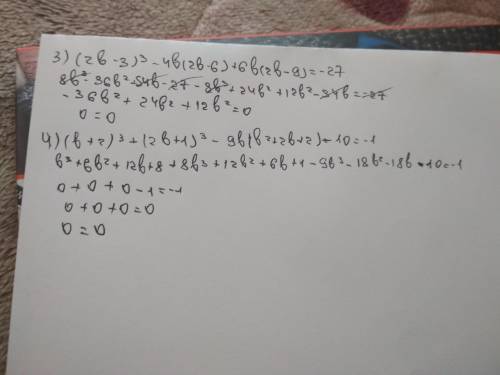 3) (2b-3)³ -4b(2b-6)+6b(2b-9)=-27
8b³-36b²-54b-27-8b³+24b²+12b²-54b=-27
-36b²+24b²+12b²=0
0=0
4) (b+2)³+(2b+1)³-9b(b²+2b+2)-10=-1
b³+6b²+12b+8+8b³+12b²+6b+1-9b³-18b²-18b-10=-1
0+0+0-1=-1
0+0+0=0
0=0